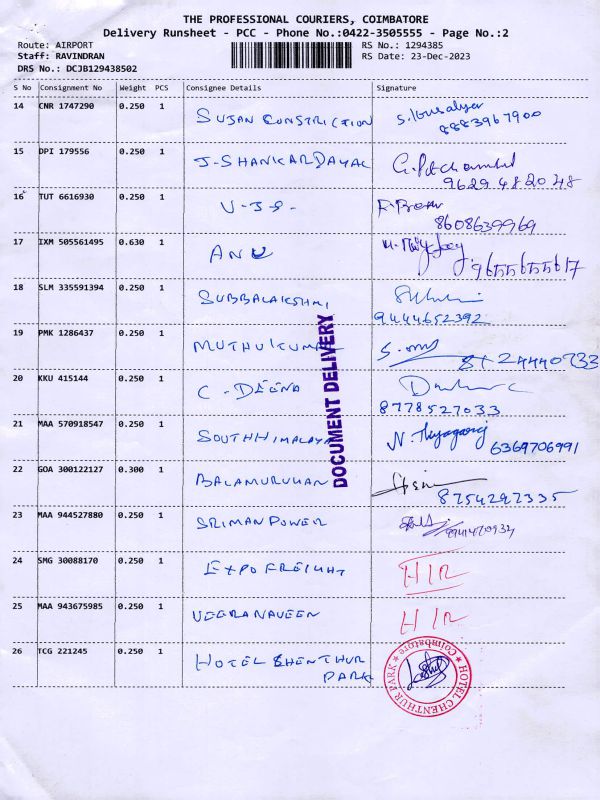 THE PROFESSIONAL COURIERS, COIMBATORE
Delivery Runsheet - PCC - Phone No.:0422-3505555 - Page No.:2
Route: AIRPORT RS No.: 1294385
Staff: RAVINDRAN RS Date: 23-Dec-2023
DRS No.: DCJB129438502
S No Consignment No Weight PCS Consignee Details Signature
14 CNR 1747290 0.250 1 SUJAN CONSTRICTION
8883967900
15 DPI 179556 0.250 1 J-SHANKARDAYAL
9629482048
16 TUT 6616930 0.250 1
8608639969
17 IXM 505561495 0.630 1 ANU
18 SLM 335591394 0.250 1 SUBBALAKSHMI
9444652392
19 PMK 1286437 0.250 1 MUTHUKUMAR
20 KKU 415144 0.250 1 C-DEENA
8778527033
21 MAA 570918547 0.250 1 SOUTHHIMALAYA 6369706991
22 GOA 300122127 0.300 1 BALAMURUHAN
8754297335
23 MAA 944527880 0.250 1 SRIMAN POWER
24 SMG 30088170 0.250 1 EXPO FREIGHT HIR
25 MAA 943675985 0.250 1 VEERANAVEEN HIR
26 TCG 221245 0.250 1 HOTEL CHENTHUR
PARK
DOCUMENT DELIVERY
HOTEL CHENTHUR PARK
Coimbatore